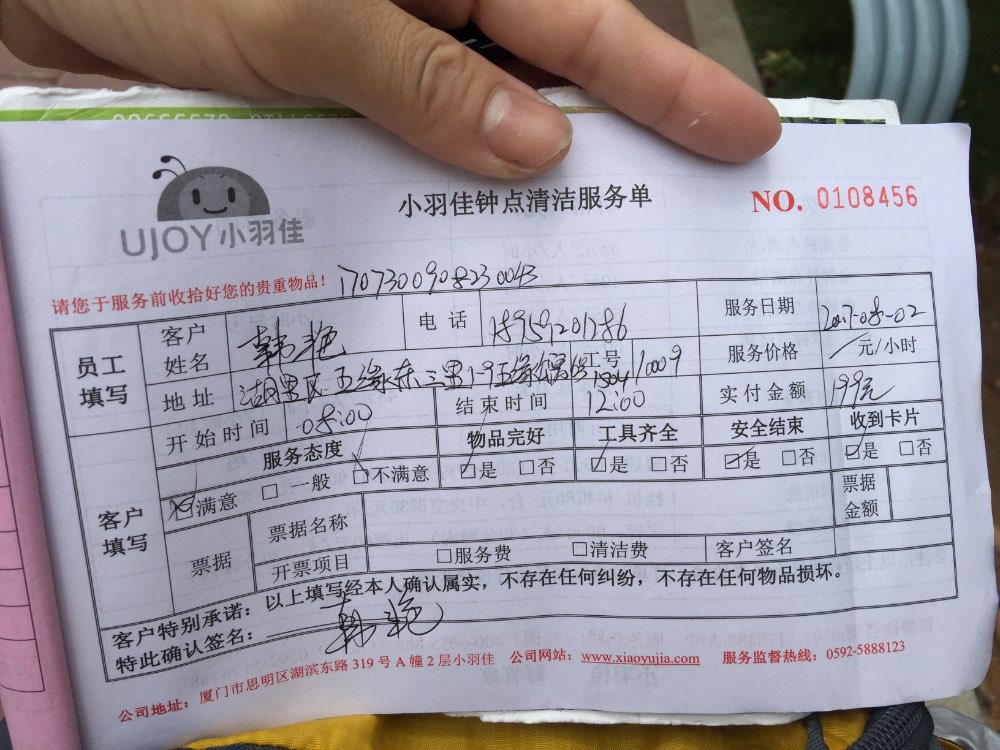 UJOY小羽佳
小羽佳钟点清洁服务单
NO. 0108456
请您于服务前收拾好您的贵重物品!
170730090823 0043
员工填写
客户姓名 韩艳 电话 18959201786 服务日期 2017-08-02
地址 湖里区五缘东三里19五缘 工号 10009 服务价格 /元/小时
开始时间 08:00 结束时间 12:00 实付金额 199元
客户填写
服务态度 物品完好 工具齐全 安全结束 收到卡片
☑满意 □一般 □不满意 ☑是 □否 ☑是 □否 ☑是 □否 ☑是 □否
票据 票据名称 票据金额
开票项目 □服务费 □清洁费 客户签名
客户特别承诺：以上填写经本人确认属实，不存在任何纠纷，不存在任何物品损坏。
特此确认签名： 韩艳
公司地址：厦门市思明区湖滨东路 319 号 A 幢 2 层小羽佳 公司网站：www.xiaoyujia.com 服务监督热线：0592-5888123